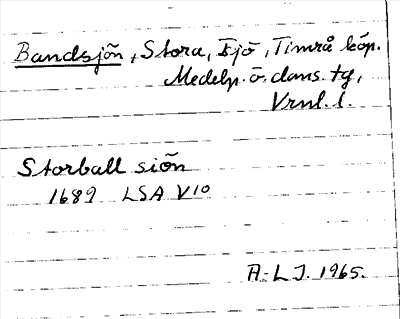 Bandsjön, Stora, sjö, Timrå köp.
Medelp. ö. doms. tg,
Vrnl. l.
Storball siön
1689 LSA V10
A.-L J. 1965.